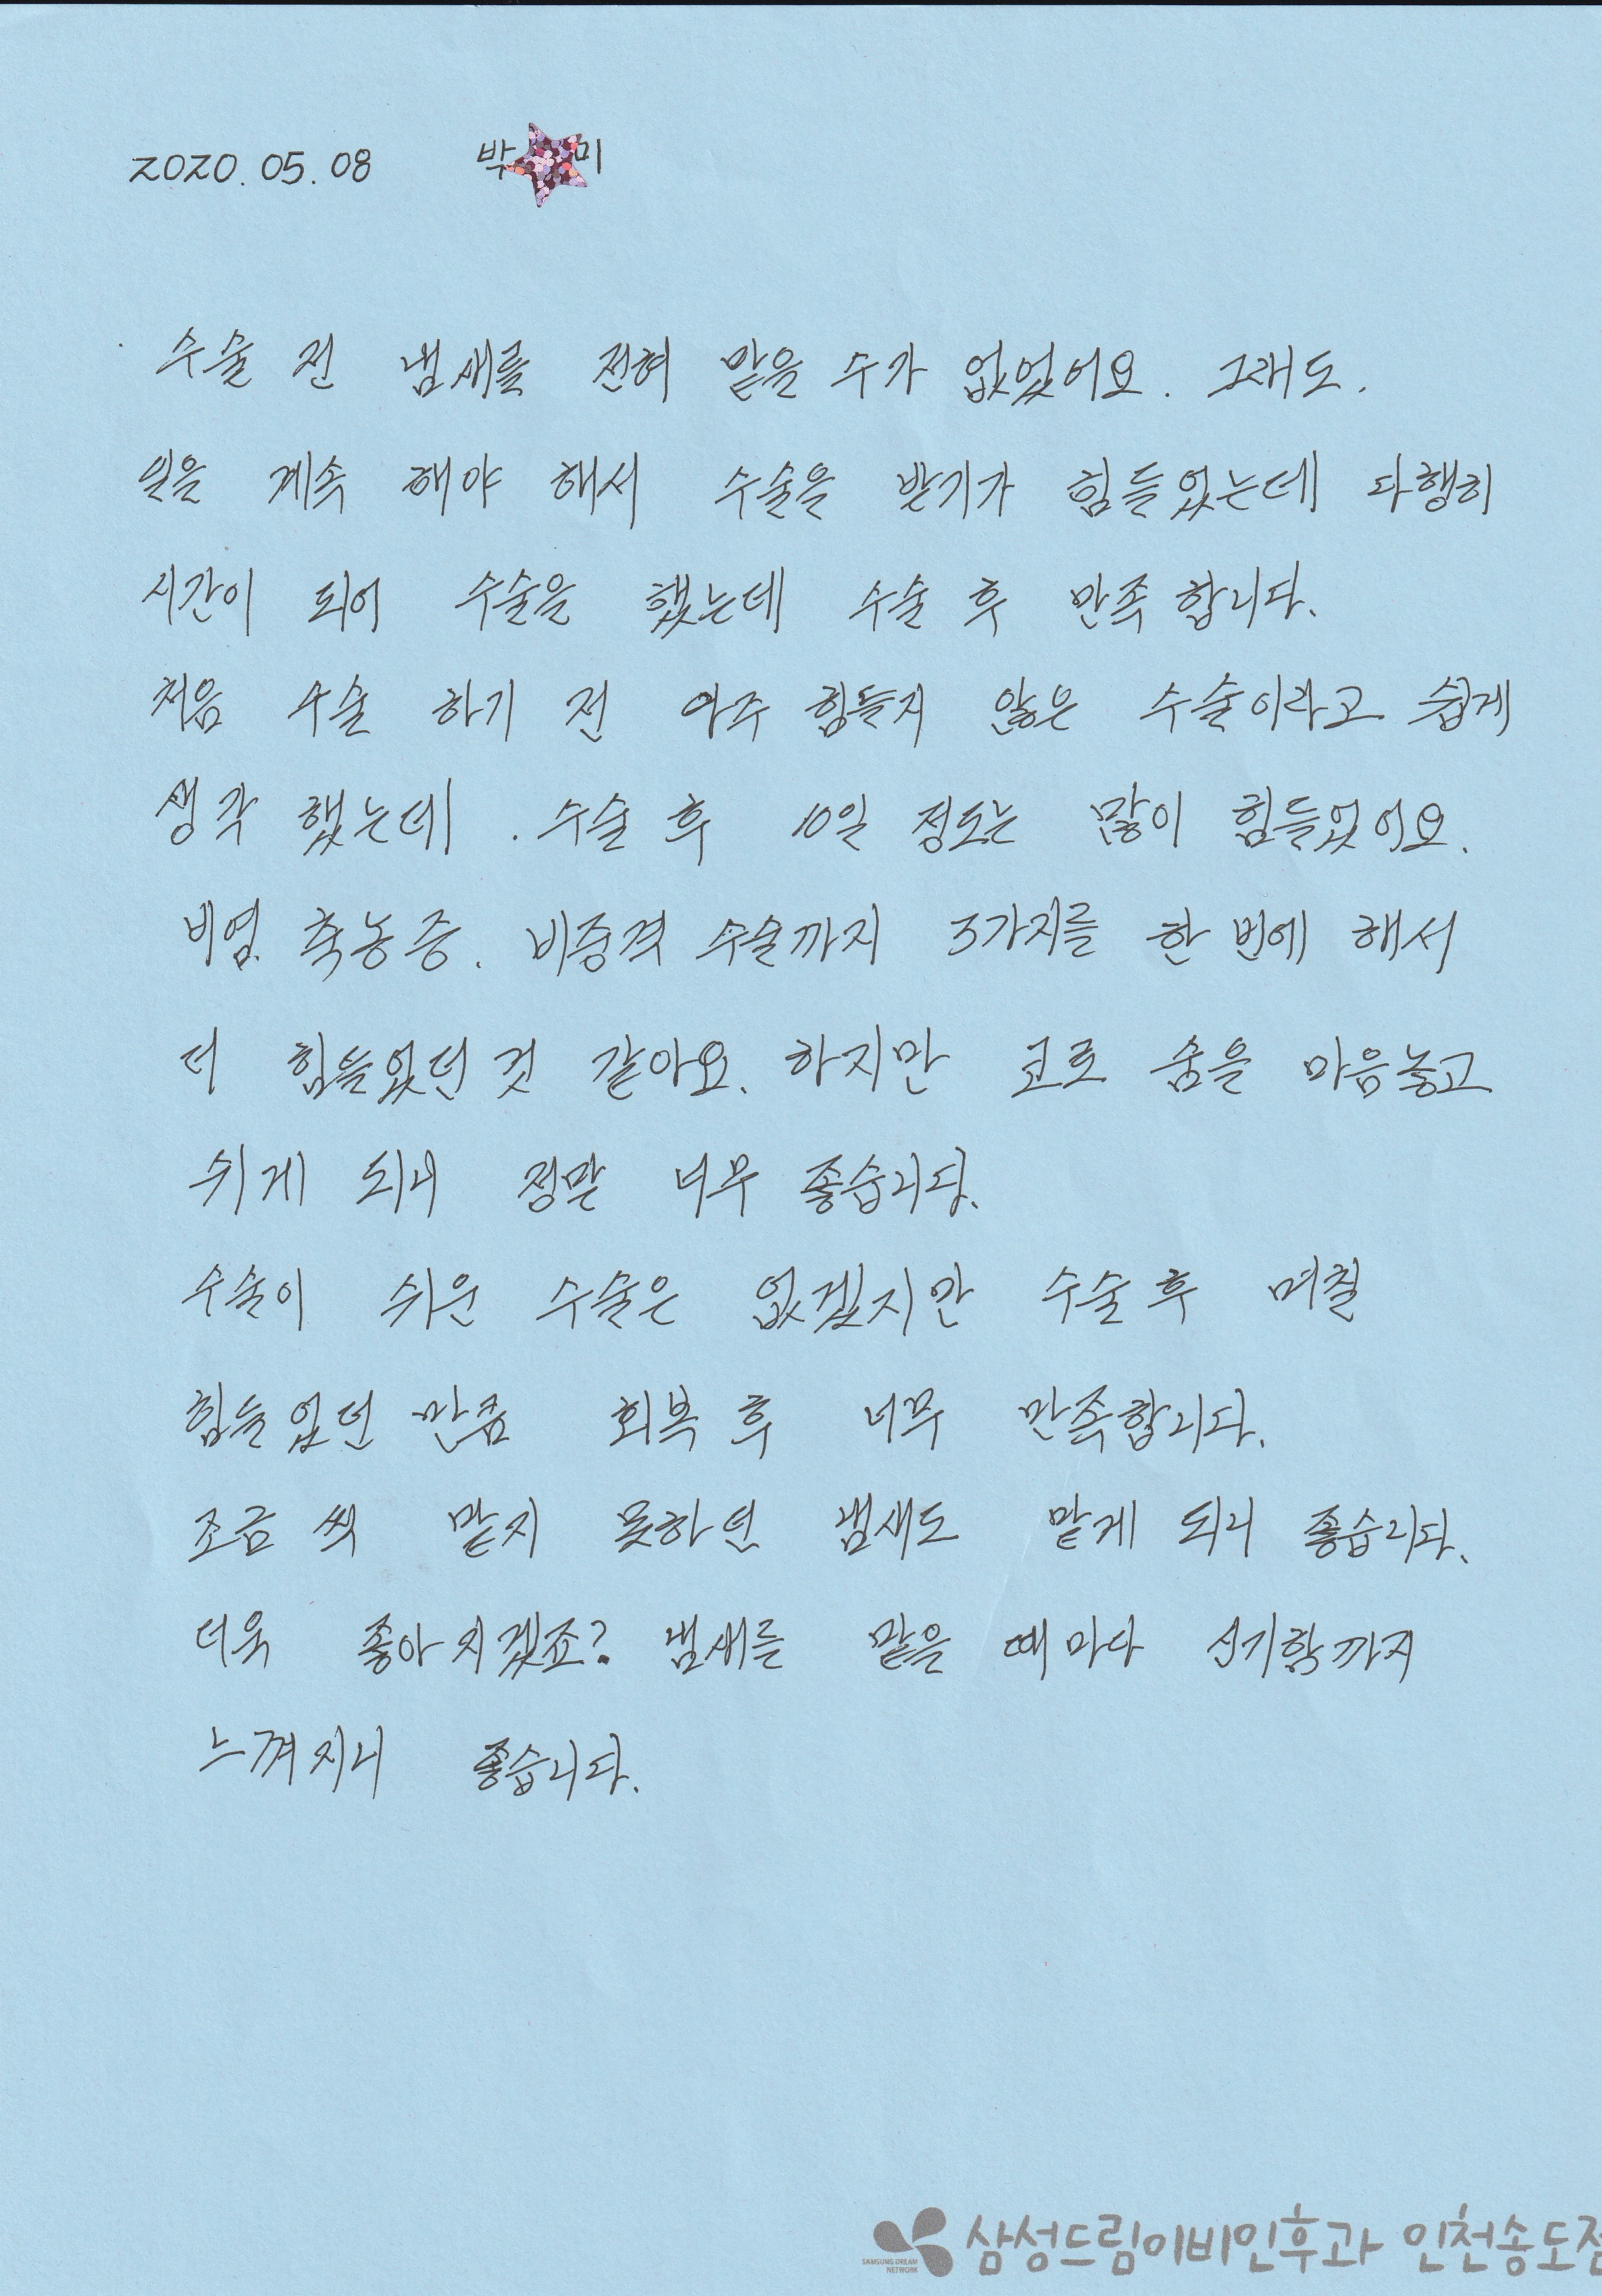 2020.05.08 박 미
수술 전 냄새를 전혀 맡을 수가 없었어요. 그래도.
일을 계속 해야 해서 수술을 받기가 힘들었는데 다행히
시간이 되어 수술을 했는데 수술 후 만족 합니다.
처음 수술 하기 전 아주 힘들지 않은 수술이라고 쉽게
생각 했는데. 수술 후 10일 정도는 많이 힘들었어요.
비염. 축농증. 비중격 수술까지 3가지를 한 번에 해서
더 힘들었던 것 같아요. 하지만 코로 숨을 마음놓고
쉬게 되니 정말 너무 좋습니다.
수술이 쉬운 수술은 없겠지만 수술 후 며칠
힘들었던 만큼 회복 후 너무 만족합니다.
조금 씩 맡지 못하던 냄새도 맡게 되니 좋습니다.
더욱 좋아 지겠죠? 냄새를 맡을 때 마다 신기함까지
느껴지니 좋습니다.
삼성드림이비인후과 인천송도점
SAMSUNG DREAM
NETWORK